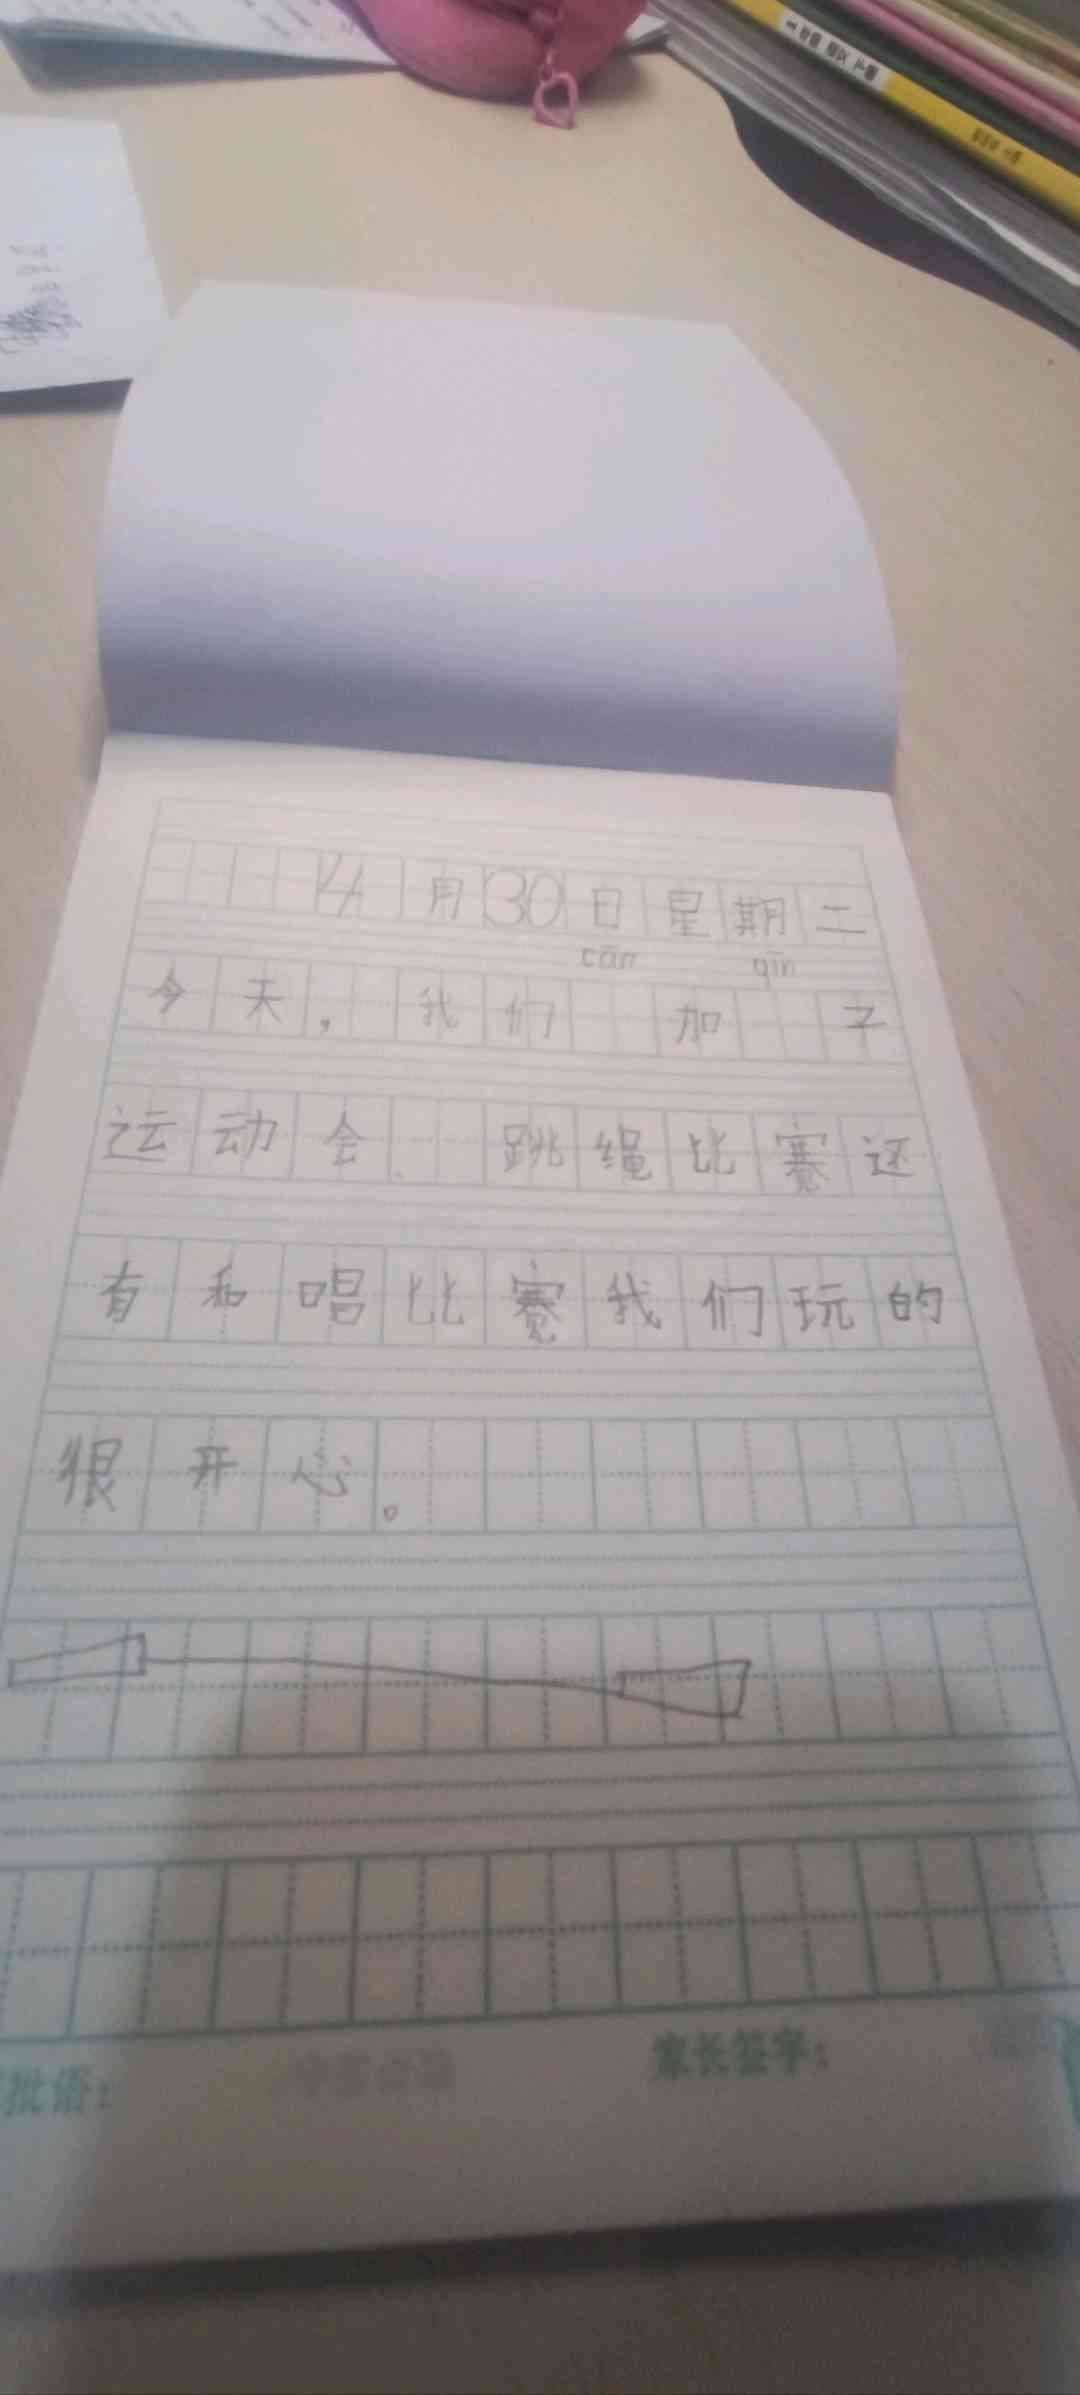 4月30日星期二
cān qīn
今天，我们 加 子
运动会、跳绳比赛还
有和唱比赛我们玩的
很开心。
批语：
家长签字：